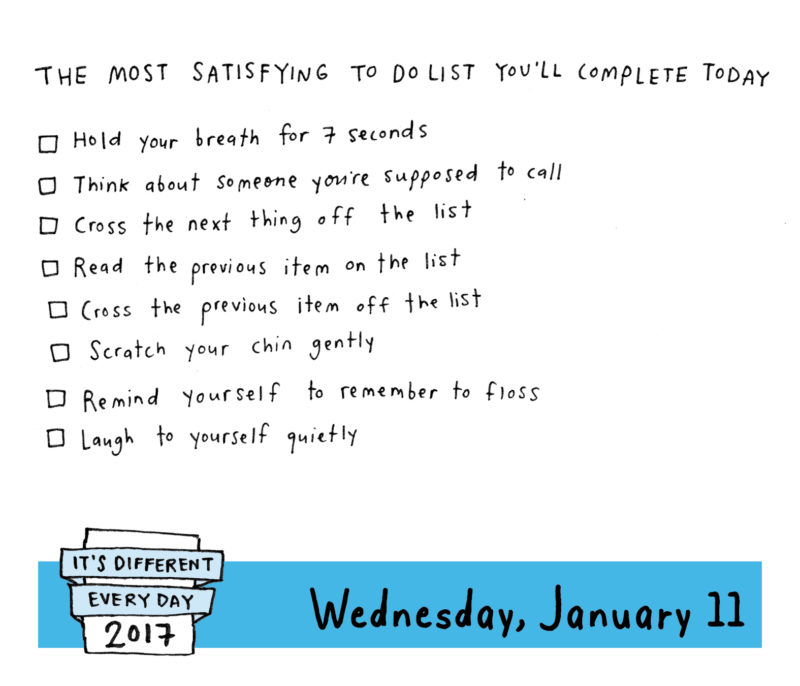 THE MOST SATISFYING TO DO LIST YOU'LL COMPLETE TODAY
Hold your breath for 7 seconds
Think about someone you're supposed to call
Cross the next thing off the list
Read the previous item on the list
Cross the previous item off the list
Scratch your chin gently
Remind yourself to remember to floss
Laugh to yourself quietly
IT'S DIFFERENT
EVERY DAY
2017
Wednesday, January 11